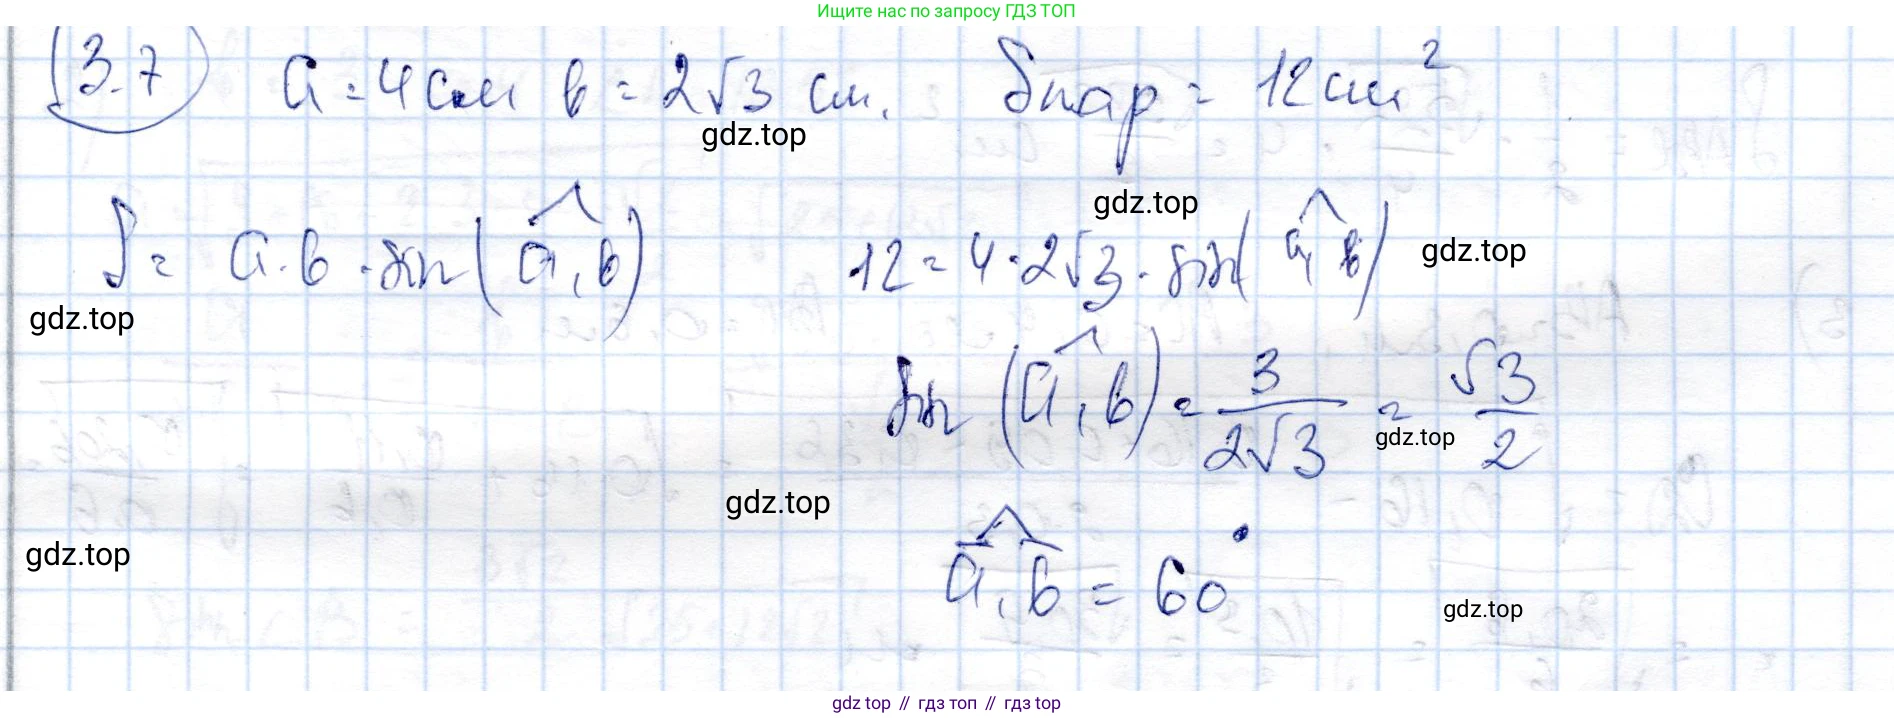 Ищите нас по запросу ГДЗ ТОП
3.7 a = 4 см в = 2√3 см. Sпар = 12 см²
gdz.top
gdz.top
S = a · в · sin (a, в) 12 = 4 · 2√3 · sin (a, в) gdz.top
gdz.top
sin (a, в) = 3/(2√3) = √3/2
gdz.top
gdz.top
gdz.top
a, в = 60°
gdz.top
gdz.top // гдз топ // гдз.top